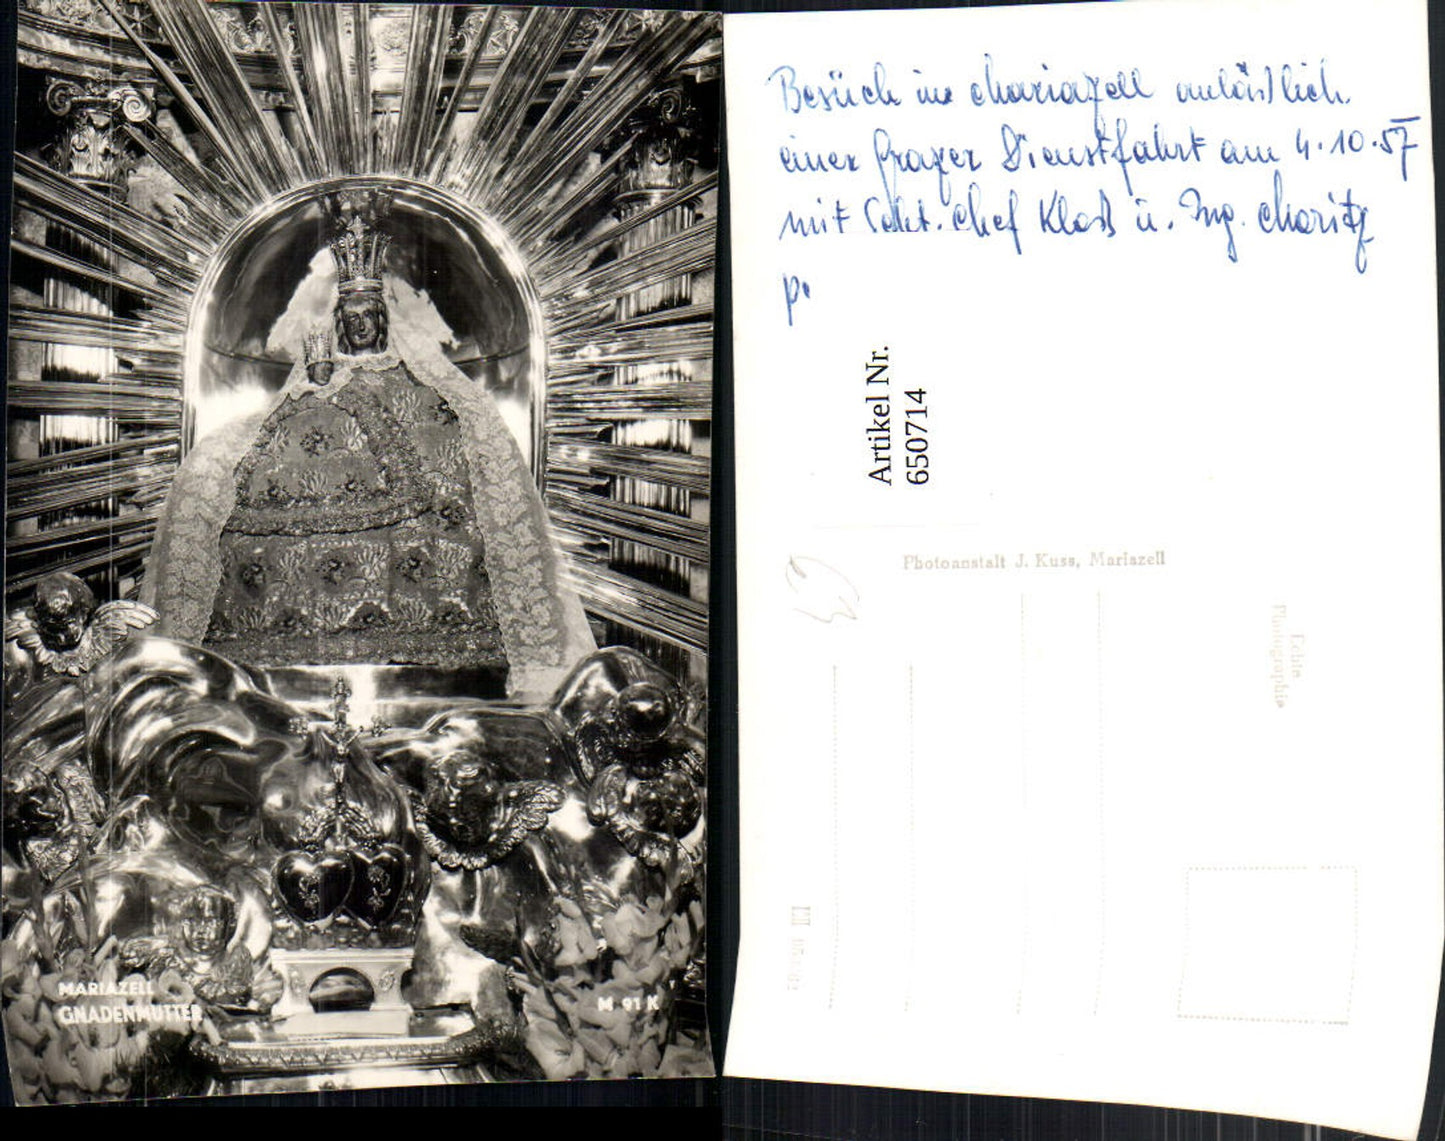 MARIAZELL
GNADENMUTTER
M 91 K
Besuch in Mariazell anlässlich
einer Grazer Dienstfahrt am 4.10.57
mit Sekt. Chef Kloß u. Ing. Moritz
p.
Artikel Nr.
650714
Photoanstalt J. Kuss, Mariazell
Echte
Photographie